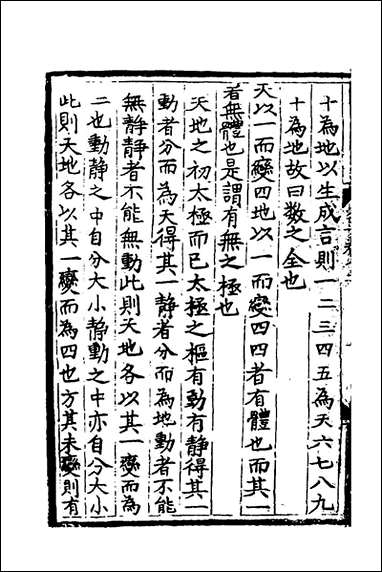 十為地以生成言則一二三四五為天六七八九
十為地故曰数之全也
天以一而變四地以一而變四四者有體也而其一
者無體也是謂有無之極也
天地之初太極而已太極之樞有動有静得其一
動者分而為天得其一静者分而為地動者不能
無静静者不能無動此則天地各以其一變而為
二也動静之中自分大小静動之中亦自分大小
此則天地各以其一變而為四也方其未變則有